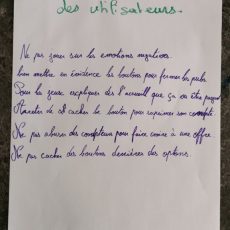 des utilisateurs.
Ne pas jouer sur les emotions negatives.
bien mettre en évidence les boutons pour fermer les pubs.
Pour la jeux expliquer dès l'accueil que ça va être payant
Arreter de cacher le bouton pour suprimer son compte
Ne pas abuser des compteurs pour faire croire à une offre.
Ne pas cacher des boutons derrières des options.